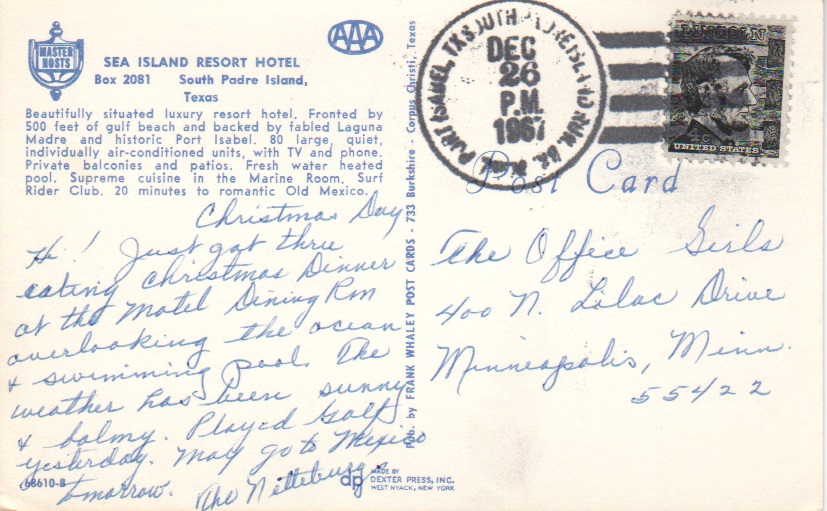 MASTER
HOSTS
AAA
SEA ISLAND RESORT HOTEL
Box 2081 South Padre Island,
Texas
Beautifully situated luxury resort hotel. Fronted by
500 feet of gulf beach and backed by fabled Laguna
Madre and historic Port Isabel. 80 large, quiet,
individually air-conditioned units, with TV and phone.
Private balconies and patios. Fresh water heated
pool. Supreme cuisine in the Marine Room, Surf
Rider Club. 20 minutes to romantic Old Mexico.
Christmas Day
Hi! Just got thru
eating Christmas Dinner
at the Motel Dining Rm
overlooking the ocean
& swimming pool. The
weather has been sunny
& balmy. Played Golf
yesterday. May go to Mexico
tomorrow. The Netteburgs
68610-B
Pub. by FRANK WHALEY POST CARDS - 733 Burkshire - Corpus Christi, Texas
dp
MADE BY
DEXTER PRESS, INC.
WEST NYACK, NEW YORK
PORT ISABEL, TX SOUTH PADRE ISLAND
DEC
26
P.M.
1967
LINCOLN
4c
UNITED STATES
Post Card
The Office Girls
400 N. Lilac Drive
Minneapolis, Minn.
55422